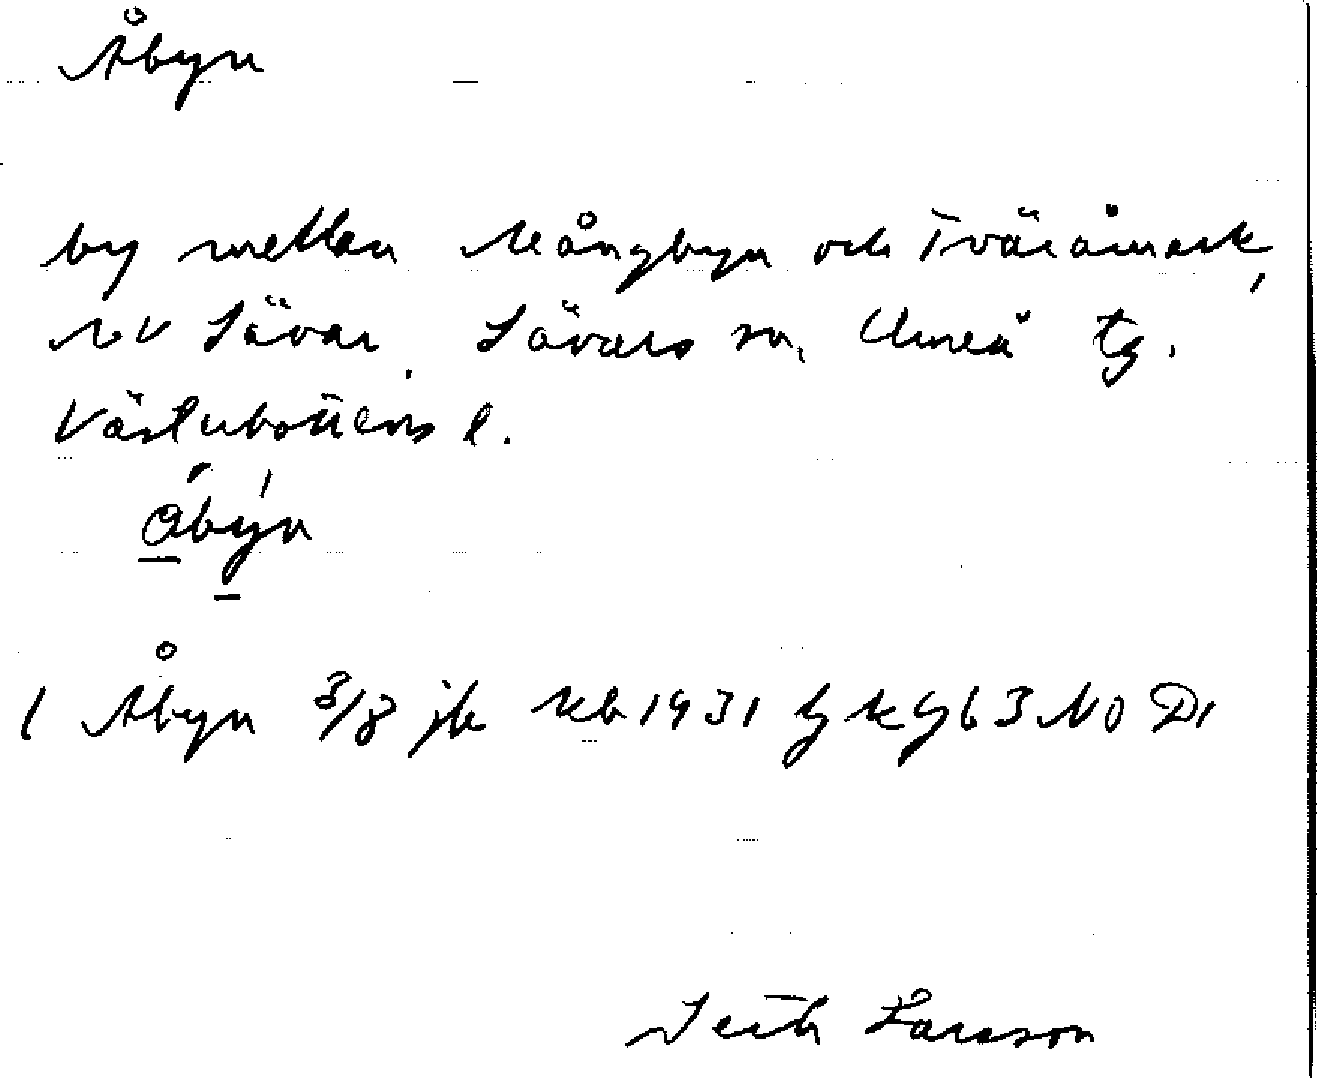 Åbyn
by mellan Mångbyn och Tväråmark,
NV Sävar. Sävars sn, Umeå tg.
Västerbottens l.
åbyn
1 Åbyn 3/8 jb Kb 1931
Larsson